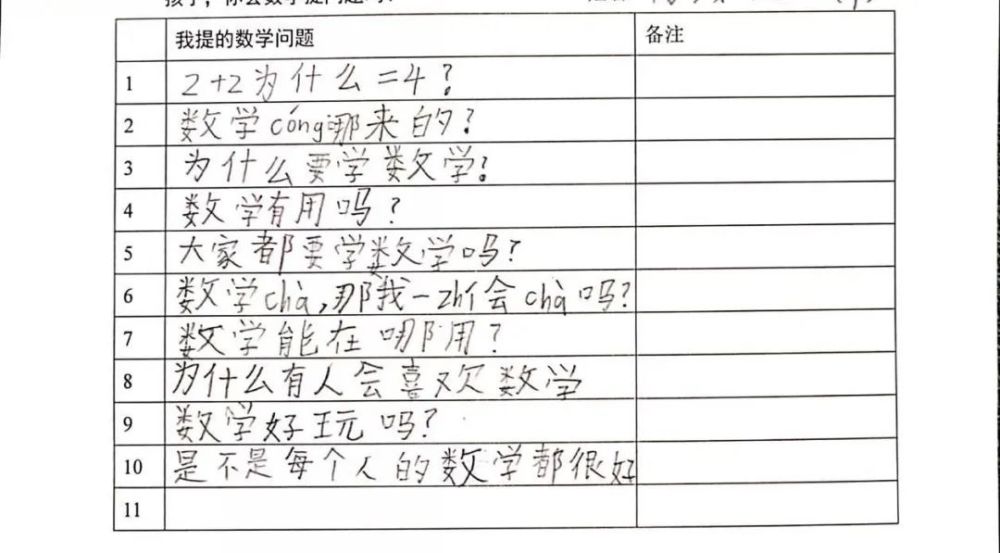 孩子，你会数学提问题吗？
我提的数学问题 备注
1 2+2为什么=4？
2 数学cóng哪来的？
3 为什么要学数学？
4 数学有用吗？
5 大家都要学数学吗？
6 数学chà，那我一zhí会chà吗？
7 数学能在哪用？
8 为什么有人会喜欢数学
9 数学好玩吗？
10 是不是每个人的数学都很好
11